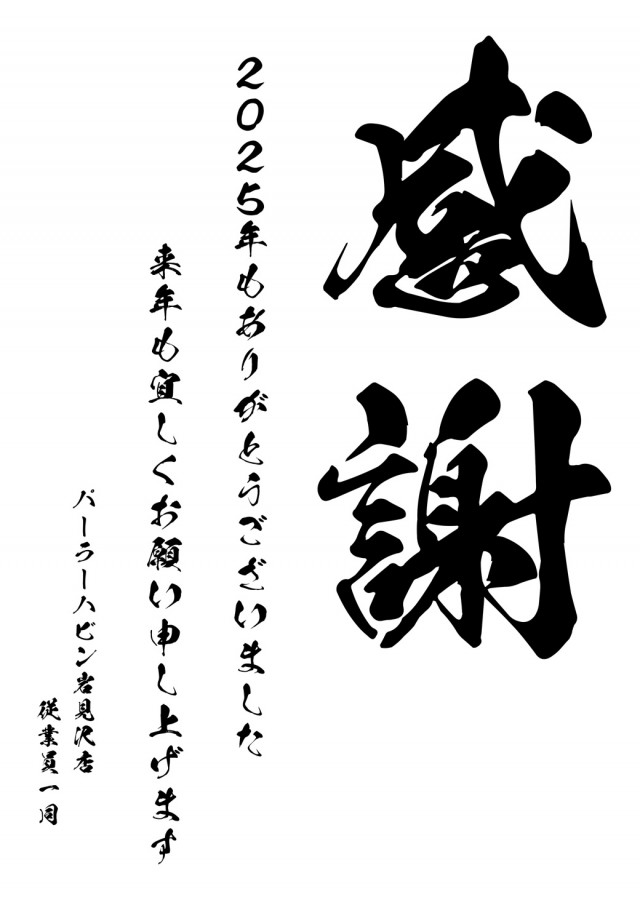 感謝
2025年もありがとうございました
来年も宜しくお願い申し上げます
パーラーハビン岩見沢店
従業員一同